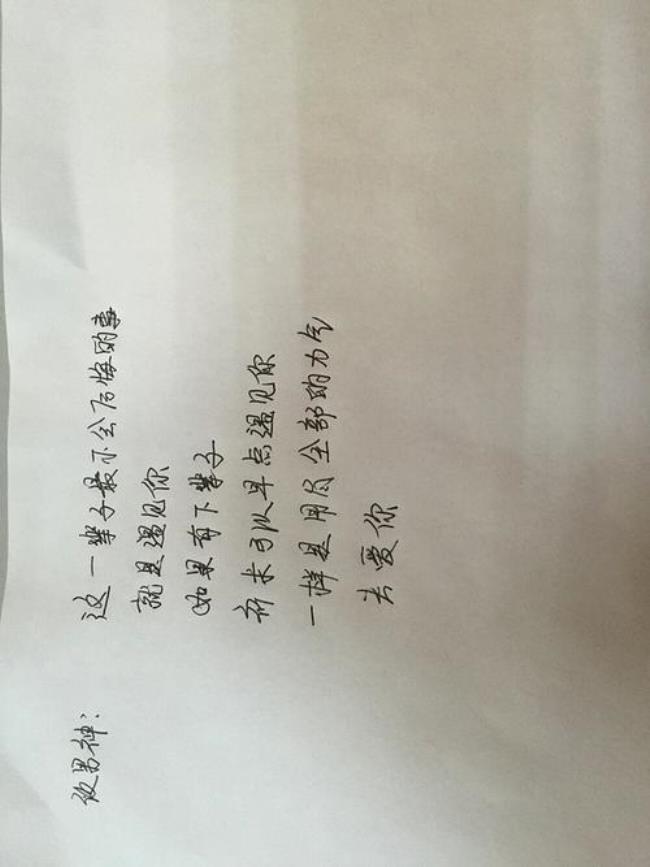 致男神：
这一辈子最不会后悔的事
就是遇见你
如果有下辈子
祈求可以早点遇见你
一样是用尽全部的力气
去爱你